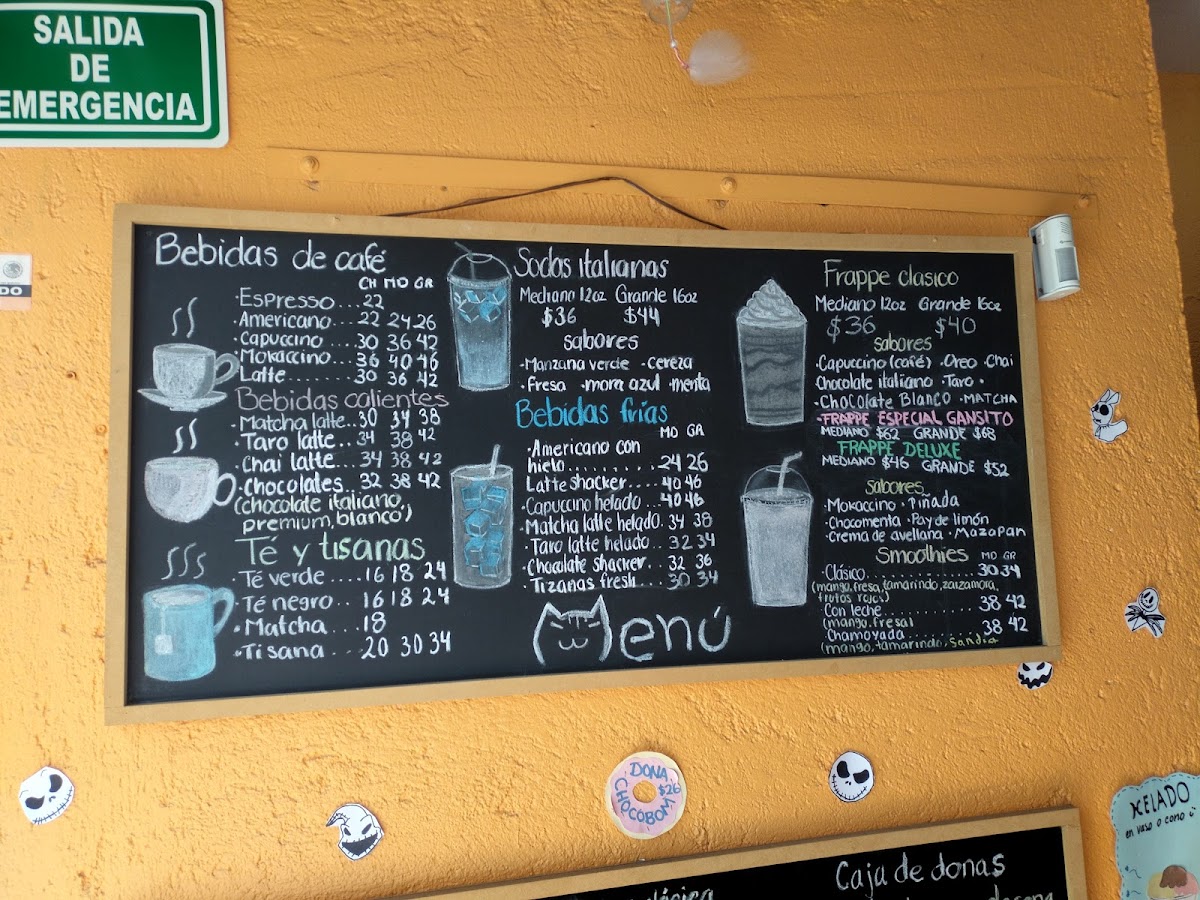 SALIDA
DE
EMERGENCIA
DO
Bebidas de café
CH MO GR
·Espresso...22
·Americano...22 24 26
·Capuccino...30 36 42
·Mokaccino...36 40 46
·Latte.......30 36 42
Bebidas calientes
·Matcha latte..30 34 38
·Taro latte..34 38 42
·Chai latte...34 38 42
·Chocolates..32 38 42
(chocolate italiano,
premium, blanco,)
Té y tisanas
·Té verde ....16 18 24
·Té negro...16 18 24
·Matcha....18
·Tisana...20 30 34
Sodas italianas
Mediano 12oz Grande 16oz
$36 $44
sabores
·Manzana verde ·Cereza
·Fresa ·mora azul ·menta
Bebidas frias
MO GR
·Americano con
hielo.........24 26
Latte shacker....40 46
·Capuccino helado...40 46
·Matcha latte helado.34 38
·Taro latte helado...32 34
·Chocolate shacker..32 36
Tizanas fresh....30 34
Menú
Frappe clasico
Mediano 12oz Grande 16oz
$36 $40
sabores
·Capuccino (café) ·Oreo ·Chai
Chocolate italiano ·Taro ·
·CHOCOLATE BLANCO ·MATCHA
·FRAPPE ESPECIAL GANSITO
MEDIANO $62 GRANDE $68
FRAPPE DELUXE
MEDIANO $46 GRANDE $52
sabores
·Mokaccino ·Piñada
·Chocomenta ·Pay de limón
·Crema de avellana ·Mazapan
Smoothies MO GR
·Clásico...............30 34
(mango, fresa, tamarindo, zarzamora,
frutos rojos)
Con leche..............38 42
(mango, fresa)
Chamoyada...........38 42
(mango, tamarindo, sandia
DONA
$26
CHOCOBOM
HELADO
en vaso o cono
Caja de donas